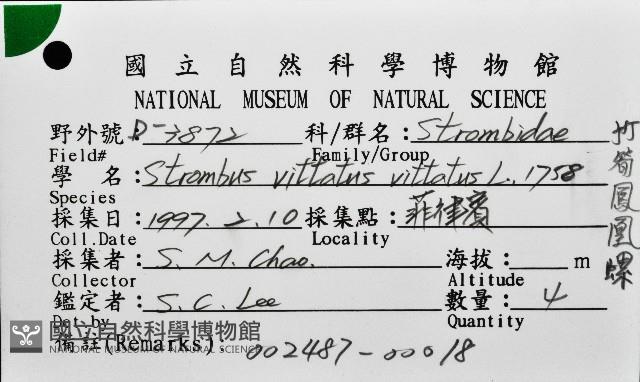 國立自然科學博物館
NATIONAL MUSEUM OF NATURAL SCIENCE
野外號: D-3872 科/群名: Strombidae
Field# Family/Group
學 名: Strombus vittatus vittatus L. 1758
Species
採集日: 1997. 2. 10 採集點: 菲律賓
Coll.Date Locality
採集者: S. M. Chao. 海拔: m
Collector Altitude
鑑定者: S. C. Lee 數量: 4
Det.by Quantity
備註(Remarks): 002487-00018
竹筍鳳凰螺
國立自然科學博物館
NATIONAL MUSEUM OF NATURAL SCIENCE